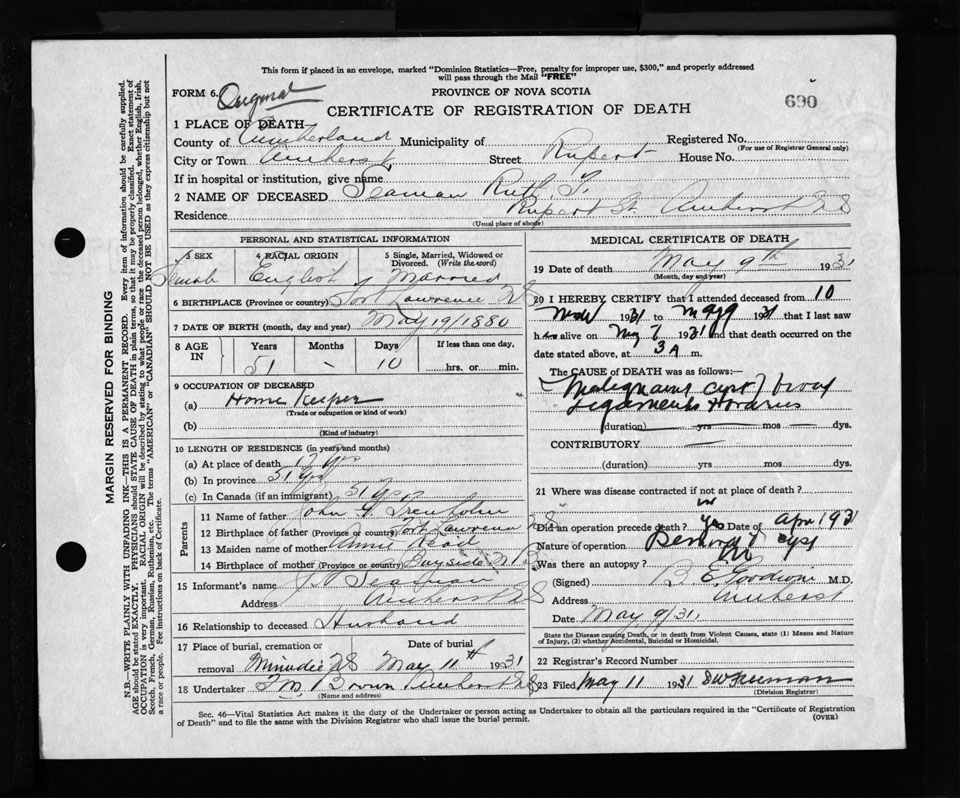 This form if placed in an envelope, marked "Dominion Statistics—Free, penalty for improper use, $300," and properly addressed
will pass through the Mail "FREE"
FORM 6. Original
PROVINCE OF NOVA SCOTIA
690
CERTIFICATE OF REGISTRATION OF DEATH
1 PLACE OF DEATH
County of Cumberland Municipality of Registered No.
(For use of Registrar General only)
City or Town Amherst Street Rupert House No.
If in hospital or institution, give name
2 NAME OF DECEASED Seaman Ruth T.
Residence Rupert St. Amherst N S
(Usual place of above)
PERSONAL AND STATISTICAL INFORMATION
3 SEX Female
4 RACIAL ORIGIN English
5 Single, Married, Widowed or Divorced. (Write the word) Married
6 BIRTHPLACE (Province or country) Fort Lawrence N S
7 DATE OF BIRTH (month, day and year) May 19/1880
8 AGE IN Years Months Days If less than one day,
51 - 10 hrs. or min.
9 OCCUPATION OF DECEASED
(a) Home Keeper
(Trade or occupation or kind of work)
(b)
(Kind of industry)
10 LENGTH OF RESIDENCE (in years and months)
(a) At place of death yrs
(b) In province 51 yrs
(c) In Canada (if an immigrant) 51 yrs
Parents
11 Name of father John Trenholm
12 Birthplace of father (Province or country) Fort Lawrence N S
13 Maiden name of mother Annie Read
14 Birthplace of mother (Province or country) Bayside N B
15 Informant's name Seaman
Address Amherst N S
16 Relationship to deceased Husband
17 Place of burial, cremation or removal Minudie N S Date of burial May 11th 1931
18 Undertaker Brown Amherst N S
(Name and address)
MEDICAL CERTIFICATE OF DEATH
19 Date of death May 9th 1931
(Month, day and year)
20 I HEREBY CERTIFY that I attended deceased from 10
1931 to May 9 1931 that I last saw
h er alive on May 7 1931 and that death occurred on the
date stated above, at 3 A m.
The CAUSE OF DEATH was as follows:
Malignant cyst broad
Ligaments & ovaries
(duration) yrs mos dys.
CONTRIBUTORY
(duration) yrs mos dys.
21 Where was disease contracted if not at place of death?
Did an operation precede death? yes Date of Apr 1931
Nature of operation Removal of cyst
Was there an autopsy? no
(Signed) E. Goodwin M.D.
Address Amherst
Date May 9/31
State the Disease causing Death, or in death from Violent Causes, state (1) Means and Nature
of Injury, (2) whether Accidental, Suicidal or Homicidal.
22 Registrar's Record Number
23 Filed May 11 1931 Freeman
(Division Registrar)
Sec. 46—Vital Statistics Act makes it the duty of the Undertaker or person acting as Undertaker to obtain all the particulars required in the "Certificate of Registration
of Death" and to file the same with the Division Registrar who shall issue the burial permit.
(OVER)
MARGIN RESERVED FOR BINDING
N.B.—WRITE PLAINLY WITH UNFADING INK—THIS IS A PERMANENT RECORD. Every item of information should be carefully supplied.
AGE should be stated EXACTLY. PHYSICIANS should STATE CAUSE OF DEATH in plain terms, so that it may be properly classified. Exact statement of
OCCUPATION is very important. RACIAL ORIGIN will be described by stating to what people or race the deceased person belonged, whether English, Irish,
Scotch, French, German, Russian, Ruthenian, etc. The terms "AMERICAN" or "CANADIAN" SHOULD NOT BE USED as they express citizenship but not
a race or people. See instructions on back of Certificate.